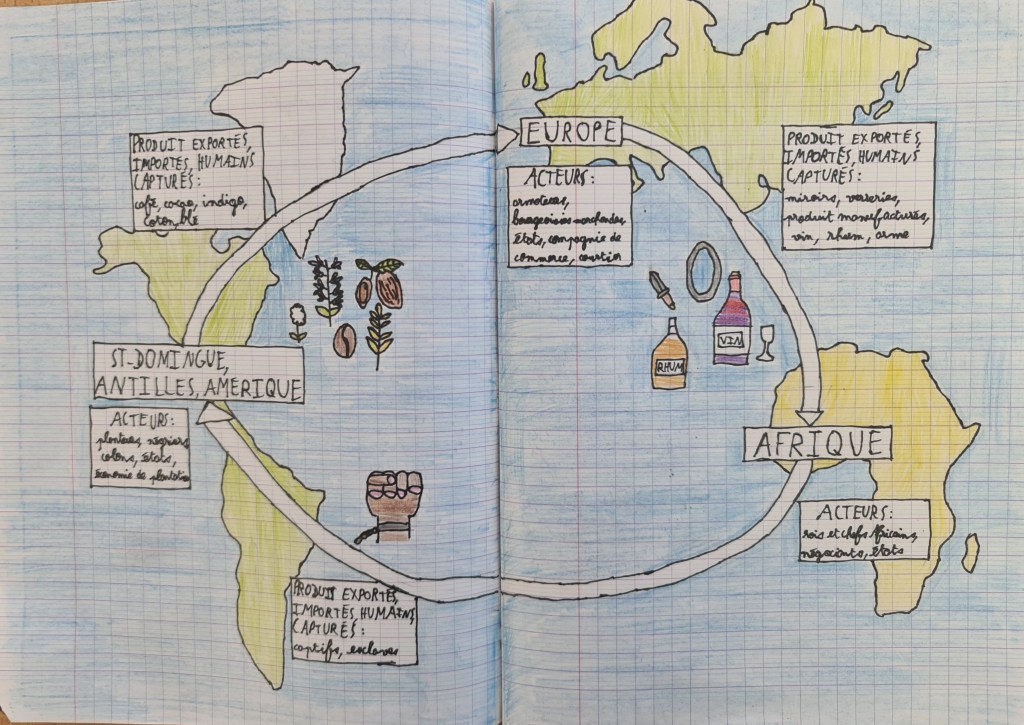 PRODUIT EXPORTÉS,
IMPORTÉS, HUMAINS
CAPTURÉS :
café, cacao, indigo,
coton, blé
EUROPE
ACTEURS :
armateurs,
bourgeoisies marchandes,
États, compagnie de
commerce, courtier
PRODUIT EXPORTÉS,
IMPORTÉS, HUMAINS
CAPTURÉS :
miroirs, verreries,
produit manufacturés,
vin, rhum, arme
VIN
RHUM
ST-DOMINGUE,
ANTILLES, AMÉRIQUE
ACTEURS :
planteurs, négriers,
colons, États,
économie de plantation
AFRIQUE
ACTEURS :
rois et chefs Africains,
négociants, États
PRODUIT EXPORTÉS,
IMPORTÉS, HUMAINS,
CAPTURÉS :
captifs, esclaves